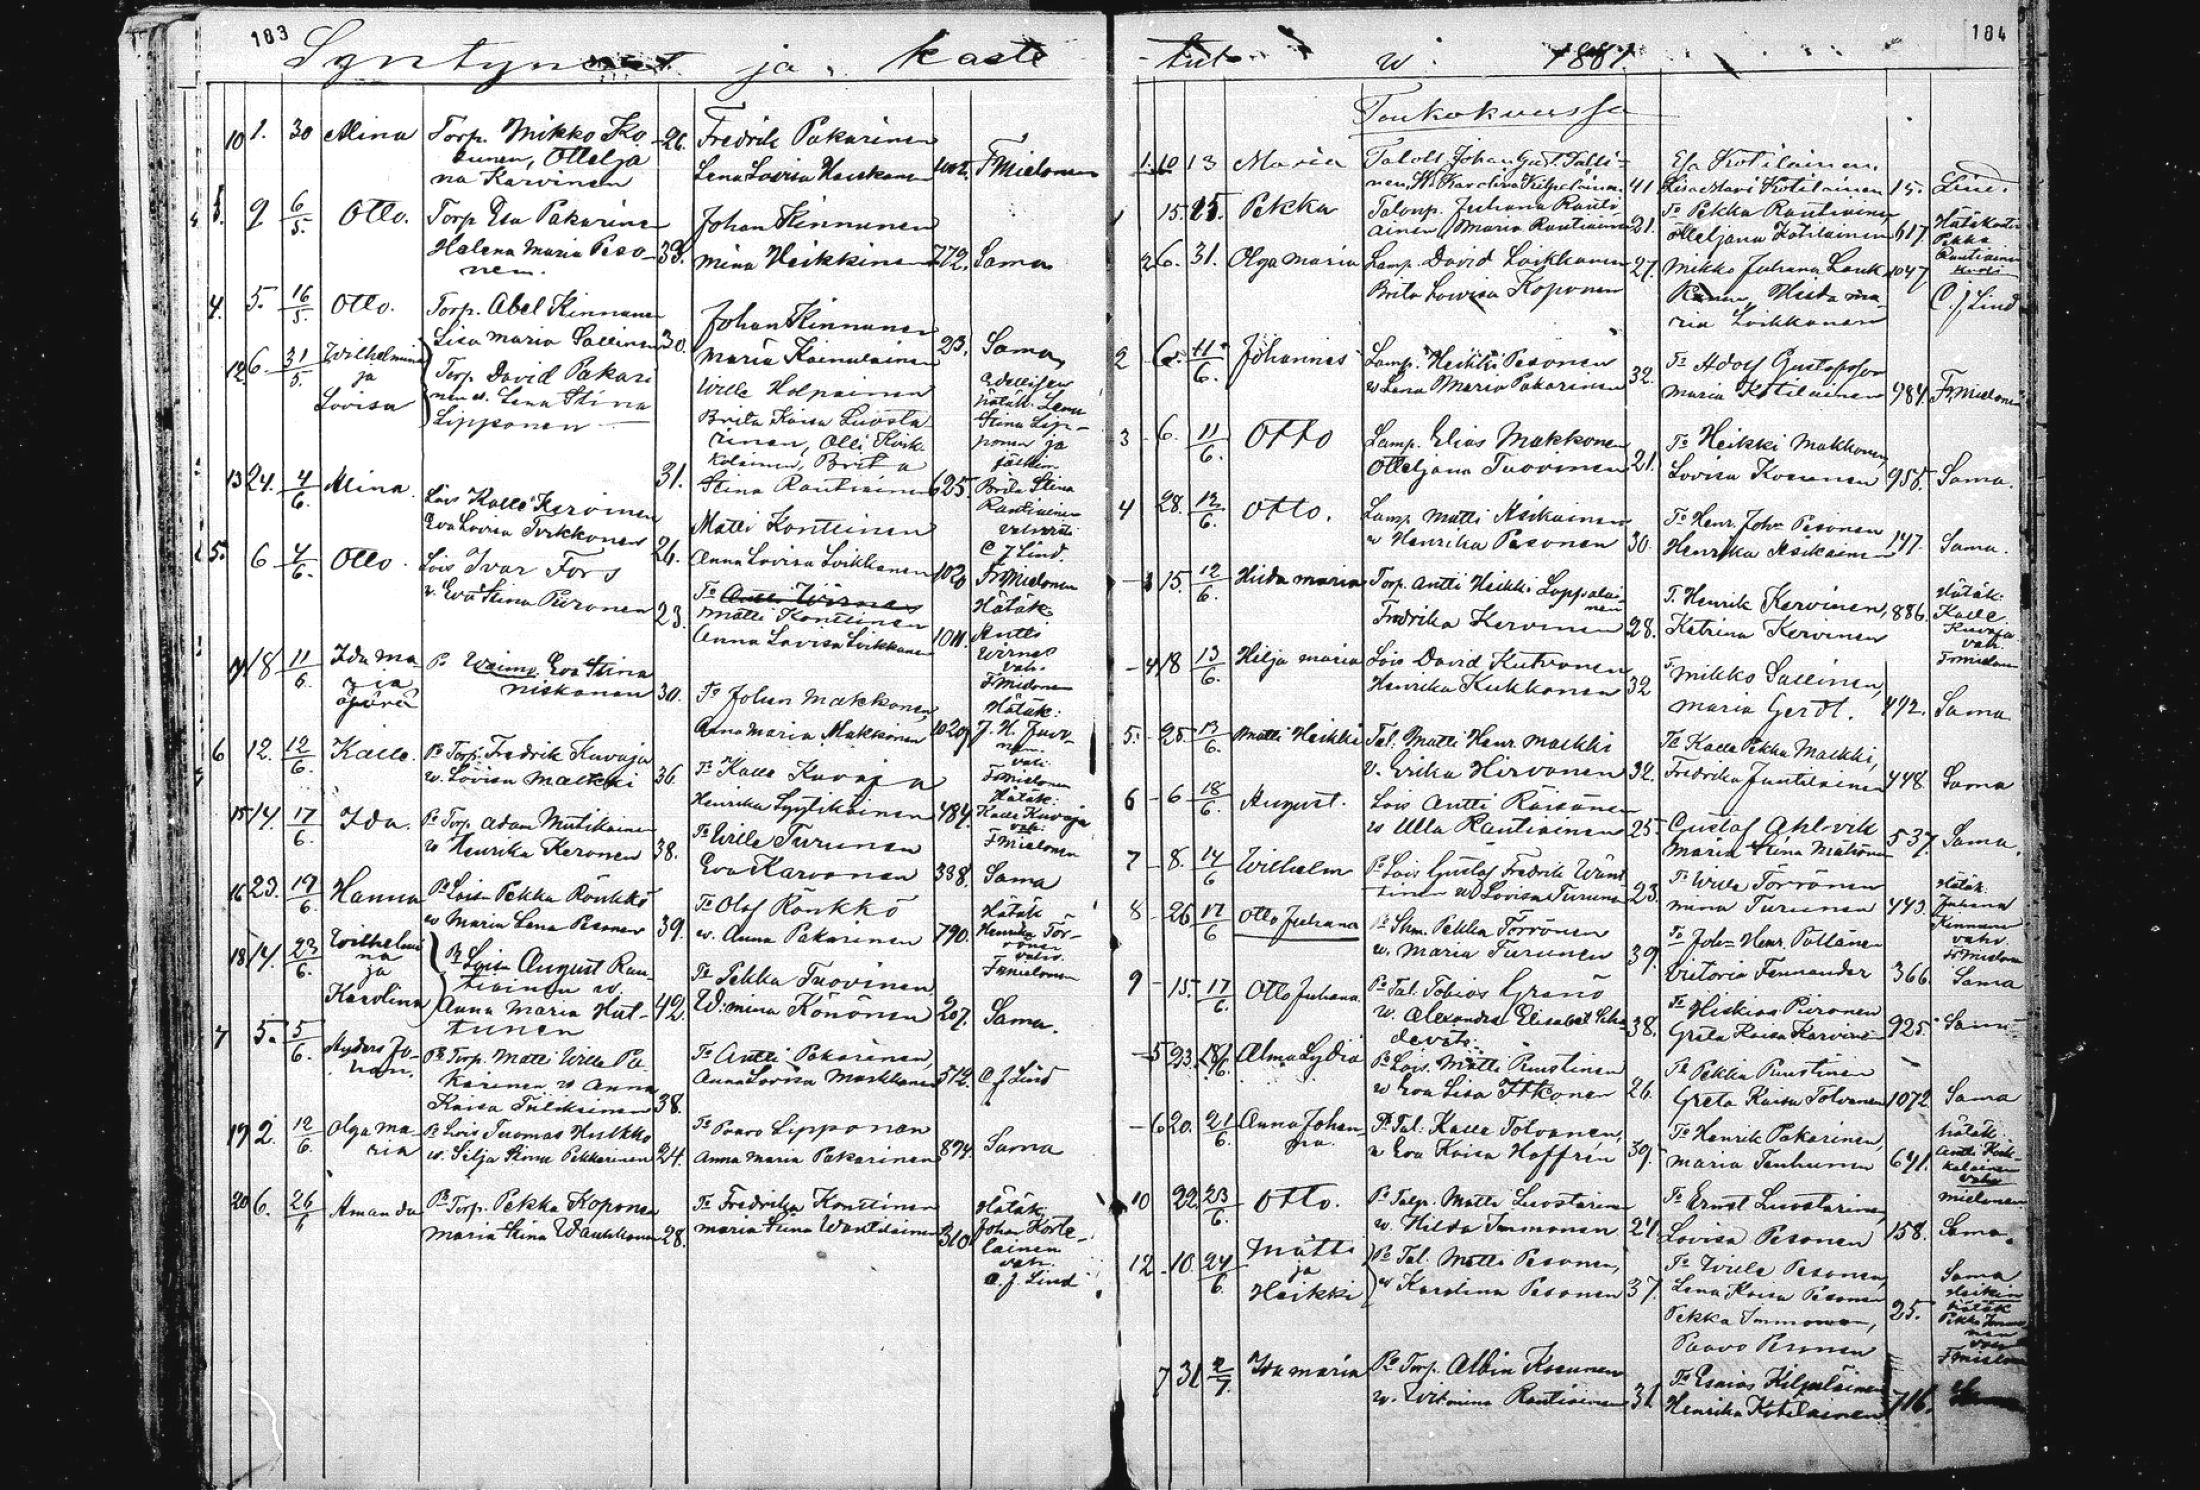 183
Syntyneet ja kaste
10 1. 30 Alina Torp. Mikko Ko- 26. Fredrik Pakarinen
sunen, Ottelja
na Karvinen Lena Lovisa Heiskanen 1002. F Mielonen
9 6/5. Otto. Torp Esa Pakarinen Johan Kinnunen
Helena Maria Peso- 39. Mina Heikkinen 772. Sama
nen.
4. 5. 16/5. Otto. Torp. Abel Kinnunen Johan Kinnunen
Lisa Maria Sallinen 30. Maria Kainulainen 23. Sama
12. 6. 31/5. Wilhelmina Torp. David Pakari Wille Holpainen
ja nen w. Lena Stina Brita Kaisa Luosta
Lovisa Lipponen rinen, Olli Kork-
kolainen, Brita
31. Stina Rautiainen 625.
hätäk. Lena
Stina Lip-
ponen ja
Brita Stina
Rautiainen
13 24. 4/6. Alina. Lois Kalle Kervinen Matti Konttinen
Eva Lovisa Turkkonen 26. Anna Lovisa Loikkanen 1020 C J Lind.
5. 6 4/6. Otto. Lois Ivar Fors Fr Mielonen
w. Eva Stina Piironen 23. Matti Konttinen Hätäk.
Anna Lovisa Loikkanen 1011. Antti
Wirnes
vah.
F Mielonen
18 11/6. Ida Ma Pa Eva Stina
ria Niskanen 30. To Johan Makkonen, Hätäk:
äpärä Anna Maria Makkonen 1020 J. H. Juvo-
nen.
vah
F Mielonen
6 12. 12/6. Kalle. Po Torp. Fredrik Kuvaja To Kalle Kuvaja Hätäk:
w. Lovisa Malkki 36. Henrika Lyytikäinen 484. Kalle Kuvaja
vah.
F Mielonen
15 14. 17/6. Ida. Po Torp. Adam Mutikainen To Wille Turunen
w Henrika Keronen 38. Eva Karvonen 388. Sama
16 23. 19/6. Hanna Po Lois Pekka Rönkkö To Olof Rönkkö Hätäk
w Maria Lena Pesonen 39. w. Anna Pakarinen 790. Henrika Tör-
rönen
vahv.
F Mielonen
18 14. 23/6. Wilhelmi Po Lois August Rau-
na tiainen w. To Pekka Tuovinen
ja
Karolina Anna Maria Hut- 42. W:mina Könönen 207. Sama.
tunen
7 5. 5/6. Anders Jo- Po Torp. Matti Wille Pa- To Antti Pakarinen,
han. karinen w Anna Anna Lovisa Markkanen 512. C J Lind
Kaisa Tiilikainen 38.
19 2. 12/6. Olga Ma- Po Lois Tuomas Hulkko To Paavo Lipponen
ria w. Silja Stina Pekkarinen 24. Anna Maria Pakarinen 874. Sama
20 6. 26/6 Amanda Po Torp. Pekka Koponen To Fredrika Konttinen Hätäk.
Maria Stina Waukkonen 28. Maria Stina 310. Johan Korte-
lainen
vah.
C. J. Lind
184
tut w. 1881.
Toukokuussa
1. 10 13 Maria Taloll. Johan Gust. Salli- Esa Kotilainen.
nen, W. Karolina Kilpeläinen. 41. Lisa Stavi Kotilainen 15. Lind.
1 15. 25. Pekka Talonp. Juhana Rauti To Pekka Rautiainen
ainen Maria Rautiainen 21. Otteljana Kotilainen 617. Hätäkaste
Pekka
Rautiainen
2 6. 31. Olga Maria Lamp. David Loikkanen 27. Mikko Juhana Lauk 1047
Brita Lovisa Koponen kanen, Hilda Ma C. J. Lind
ria Loikkanen
2 6. 11/6. Johannes Lamp. Heikki Pesonen To Adolf Gustafsson
w Lena Maria Pakarinen 32. Maria Kotilainen 984. F. Mielonen
3 6. 11/6. Otto Lamp. Elias Makkonen To Heikki Makkonen,
Otteljana Tuovinen 21. Lovisa Kosunen 958. Sama.
4 28. 12/6. Otto. Lamp Matti Asikainen To Henr. Johan Pesonen
w Henrika Pesonen 30. Henrika Asikainen 147. Sama.
15. 12/6. Hilda Maria Torp. Antti Heikki Lappalai- Hätäk.
nen T. Henrik Kervinen, 886. Kalle
Fredrika Kervinen 28. Katrina Kervinen Kuvaja
vah.
F Mielonen
4 18 13/6. Hilja Maria Lois David Kutvonen Mikko Sallinen,
Henrika Kukkonen 32 Maria Gerdt. 492. Sama
5. 25. 13/6. Matti Heikki Tal. Matti Henr. Malkki To Kalle Pekka Malkki,
w. Erika Hirvonen 32. Fredrika Juntilainen 448. Sama
6 6 18/6. August. Lois Antti Räisänen Gustaf Ahlvik
w Ulla Rautiainen 25. Maria Stina Mähönen 537. Sama.
7 8. 14/6 Wilhelm Po Lois Gustaf Fredrik Wänt To Wille Törrönen Hätäk.
tinen w Lovisa Turunen 23. Mina Turunen 443. Juhana
Kinnunen
vahv.
F Mielonen
8 26 17/6 Otto Juhana Po Pekka Törrönen To Joh. Henr. Pöllänen
w. Maria Turunen 39. Viktoria Fennander 366. Sama
9 15. 17/6. Otto Juhana. Po Tal. Tobias Granö To Hiskias Piironen
w. Alexandra Elisabet 38. Greta Kaisa Karvinen 925. Sama
5 23. 18/6. Alma Lydia Po Lois. Matti Puustinen To Pekka Puustinen
w Eva Lisa Itkonen 26. Greta Kaisa Tolvanen 1072 Sama
6 20. 21/6. Anna Johan- Po Tal. Kalle Tolvanen, To Henrik Pakarinen, hätäk.
na. w Eva Kaisa Hoffrén 39. Maria Tanhunen 641. Antti Kork-
kalainen
vahv
Mielonen
10 22. 23/6. Otto. Po Talp. Matti Luostarinen To Ernst Luostarinen,
w. Hilda Immonen 24. Lovisa Pesonen 158. Sama.
12 10. 24/6. Matti Po Tal. Matti Pesonen, To Wille Pesonen, Sama
ja w Karolina Pesonen 37. Lena Kaisa Pesonen Heikin
Heikki Pekka Immonen, 25. hätäk
Paavo Pesonen Pekka Immo
nen
vahv
F Mielonen
7 31 2/7. Ida Maria Po Torp. Albin Kosunen To Esaias Kilpeläinen
w. Wilmina Rautiainen 31 Henrika Kotilainen 716.